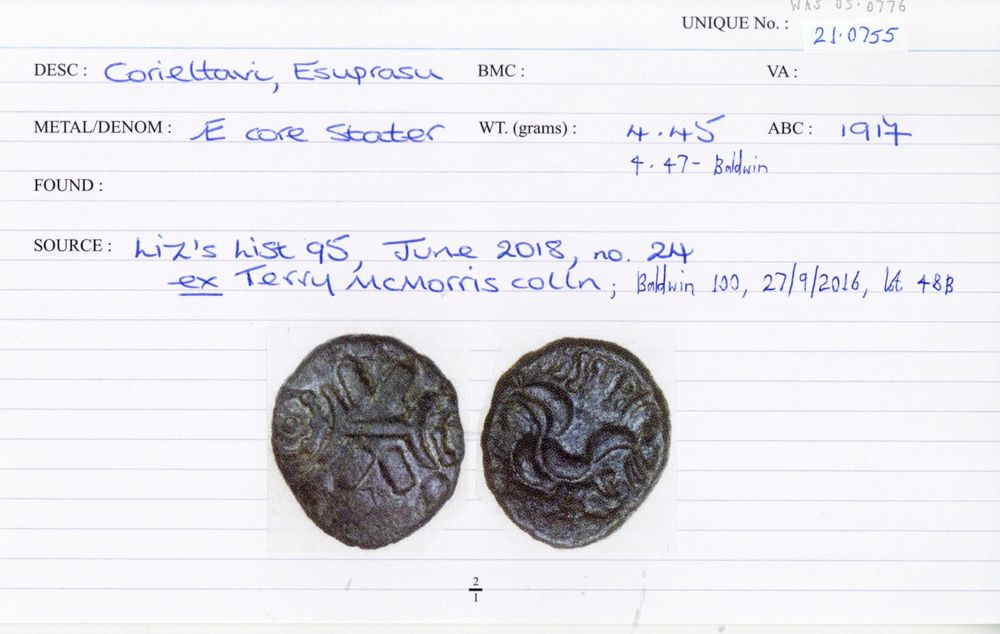 WAS 05.0776
UNIQUE No. : 21.0755
DESC : Corieltavi, Esuprasu BMC : VA :
METAL/DENOM : Æ core stater WT. (grams) : 4.45 ABC : 1917
4.47- Baldwin
FOUND :
SOURCE : Liz's List 95, June 2018, no. 24
ex Terry McMorris colln; Baldwin 100, 27/9/2016, lot 48B
2
1